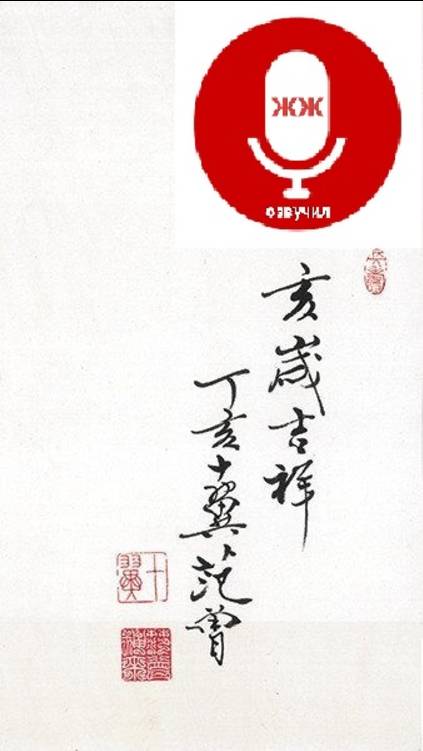 ЖЖ
озвучил
亥歲吉祥
丁亥十翼范曾
十翼